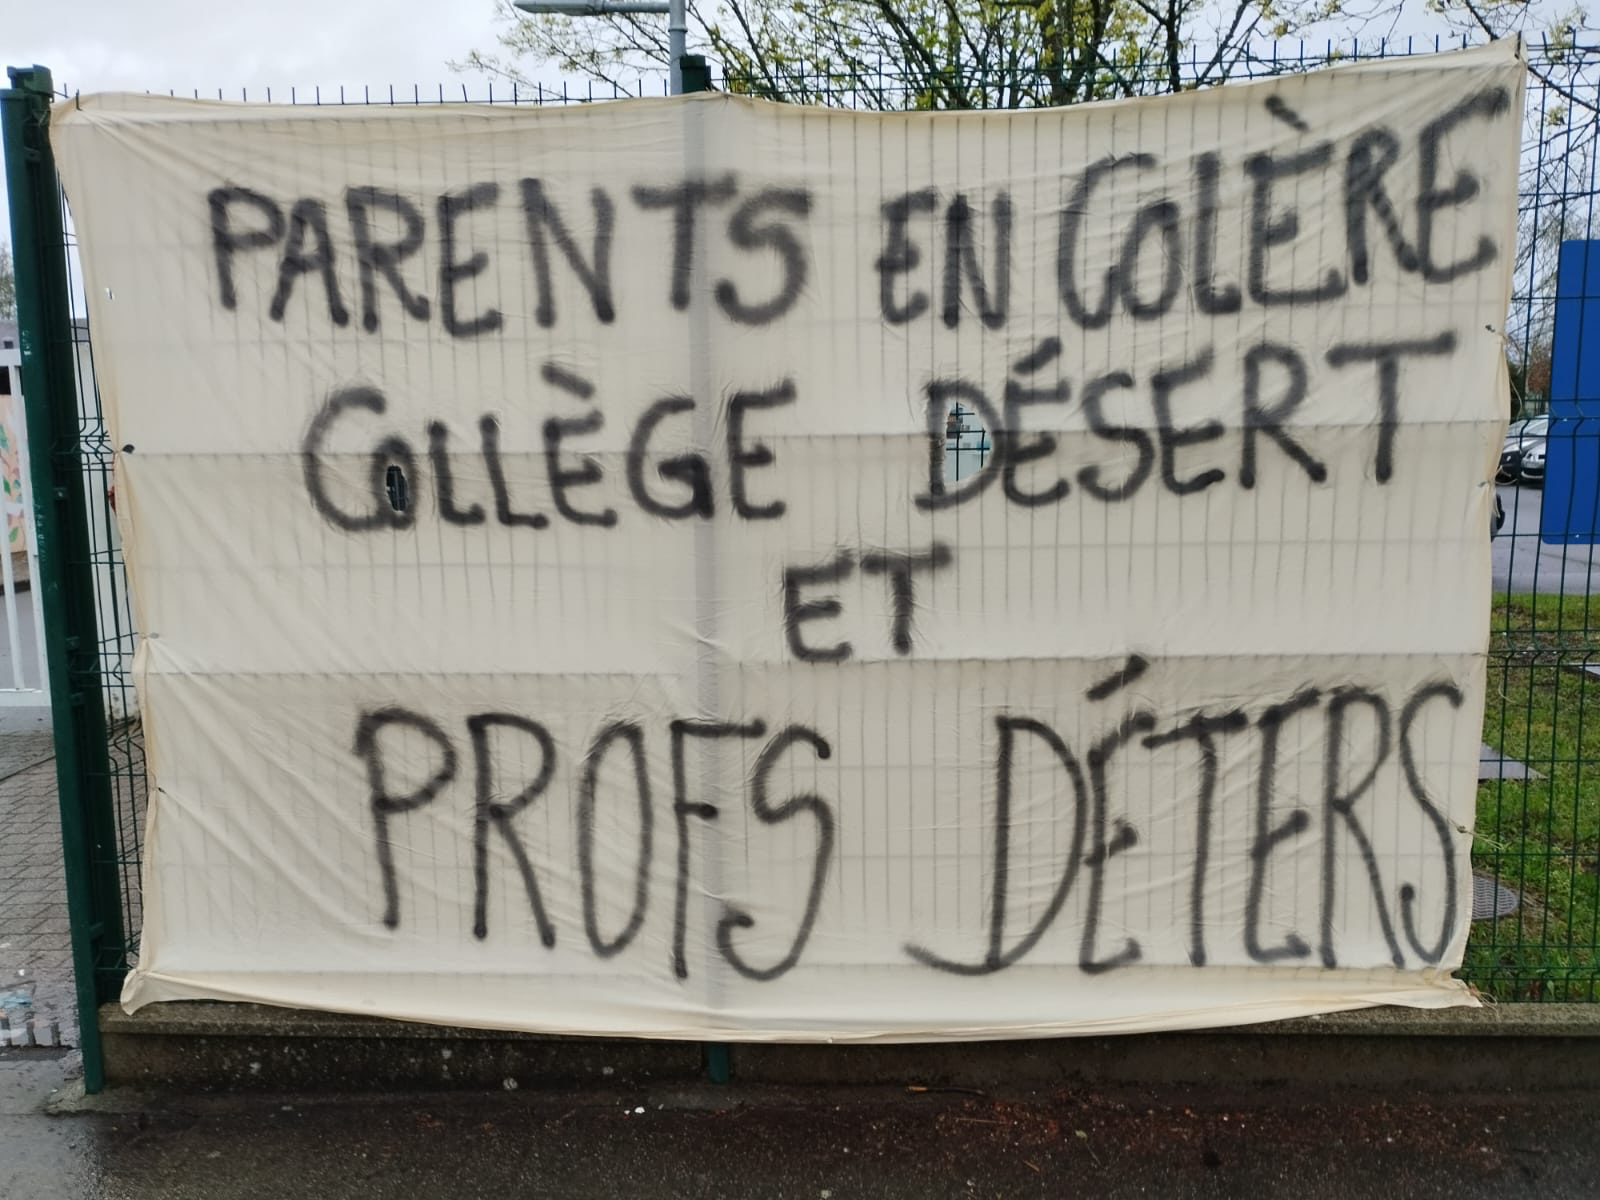 PARENTS EN COLÈRE
COLLÈGE DÉSERT
ET
PROFS DÉTERS